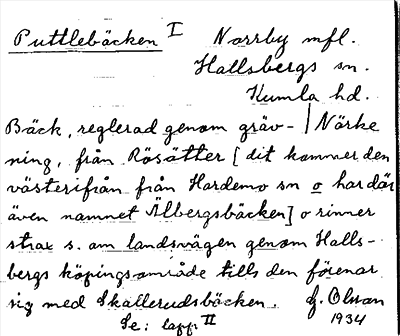 Puttlebäcken I Norrby mfl.
Hallsbergs sn.
Kumla hd.
Bäck, reglerad genom gräv- | Närke
ning, från Rösätter [dit kommer den
västerifrån från Hardemo sn o har där
även namnet Älbergsbäcken] o rinner
strax s. om landsvägen genom Halls-
bergs köpingsområde tills den förenar
sig med Skallerudsbäcken. G. Olsson
Se: lapp II 1934